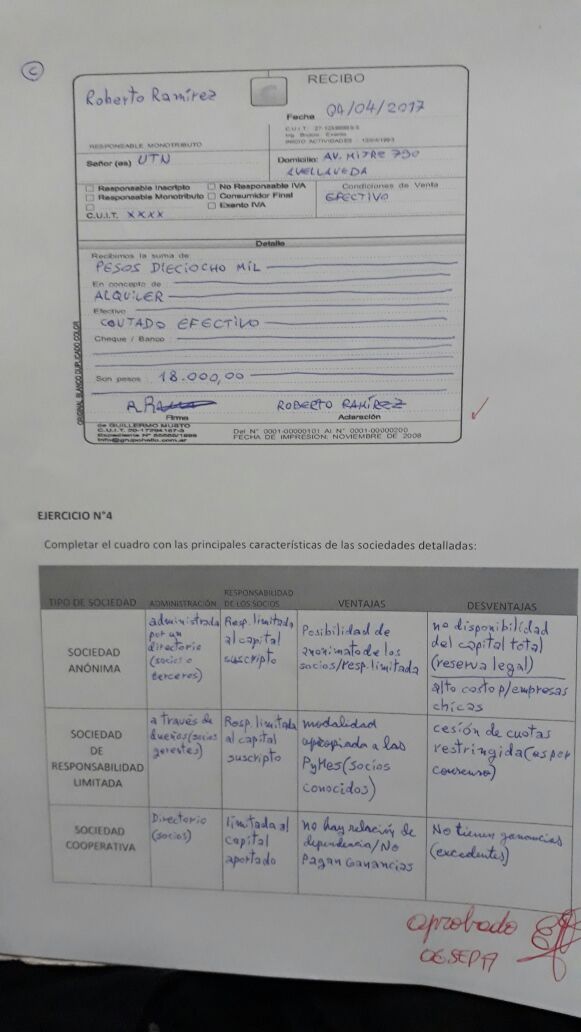 C
Roberto Ramírez
C
RECIBO
Fecha 04/04/2017
RESPONSABLE MONOTRIBUTO
INICIO ACTIVIDADES
Señor (es) UTN
Domicilio: AV. MITRE 750
AVELLANEDA
Responsable Inscripto
No Responsable IVA
Responsable Monotributo
Consumidor Final
Exento IVA
C.U.I.T. XXXX
Condiciones de Venta
EFECTIVO
Detalle
Recibimos la suma de
PESOS DIECIOCHO MIL
En concepto de
ALQUILER
Efectivo
CONTADO EFECTIVO
Cheque / Banco
Son pesos 18.000,00
Firma
ROBERTO RAMÍREZ
Aclaración
ORIGINAL BLANCO DUPLICADO COLOR
de GUILLERMO MUSTO
Del N° 0001-00000101 Al N° 0001-00000200
FECHA DE IMPRESIÓN: NOVIEMBRE DE 2008
EJERCICIO N°4
Completar el cuadro con las principales características de las sociedades detalladas:
TIPO DE SOCIEDAD
ADMINISTRACIÓN
RESPONSABILIDAD
DE LOS SOCIOS
VENTAJAS
DESVENTAJAS
SOCIEDAD
ANÓNIMA
administrada
por un
directorio
(socios o
terceros)
Resp. limitada
al capital
suscripto
Posibilidad de
anonimato de los
socios/resp. limitada
no disponibilidad
del capital total
(reserva legal)
alto costo p/empresas
chicas
SOCIEDAD
DE
RESPONSABILIDAD
LIMITADA
a través de
dueños (socios
gerentes)
Resp. limitada
al capital
suscripto
modalidad
apropiada a las
PyMes (socios
conocidos)
cesión de cuotas
restringida (es por
consenso)
SOCIEDAD
COOPERATIVA
Directorio
(socios)
limitada al
capital
aportado
no hay relación de
dependencia/No
Pagan Ganancias
No tienen ganancias
(excedentes)
aprobado
06 SEP 17